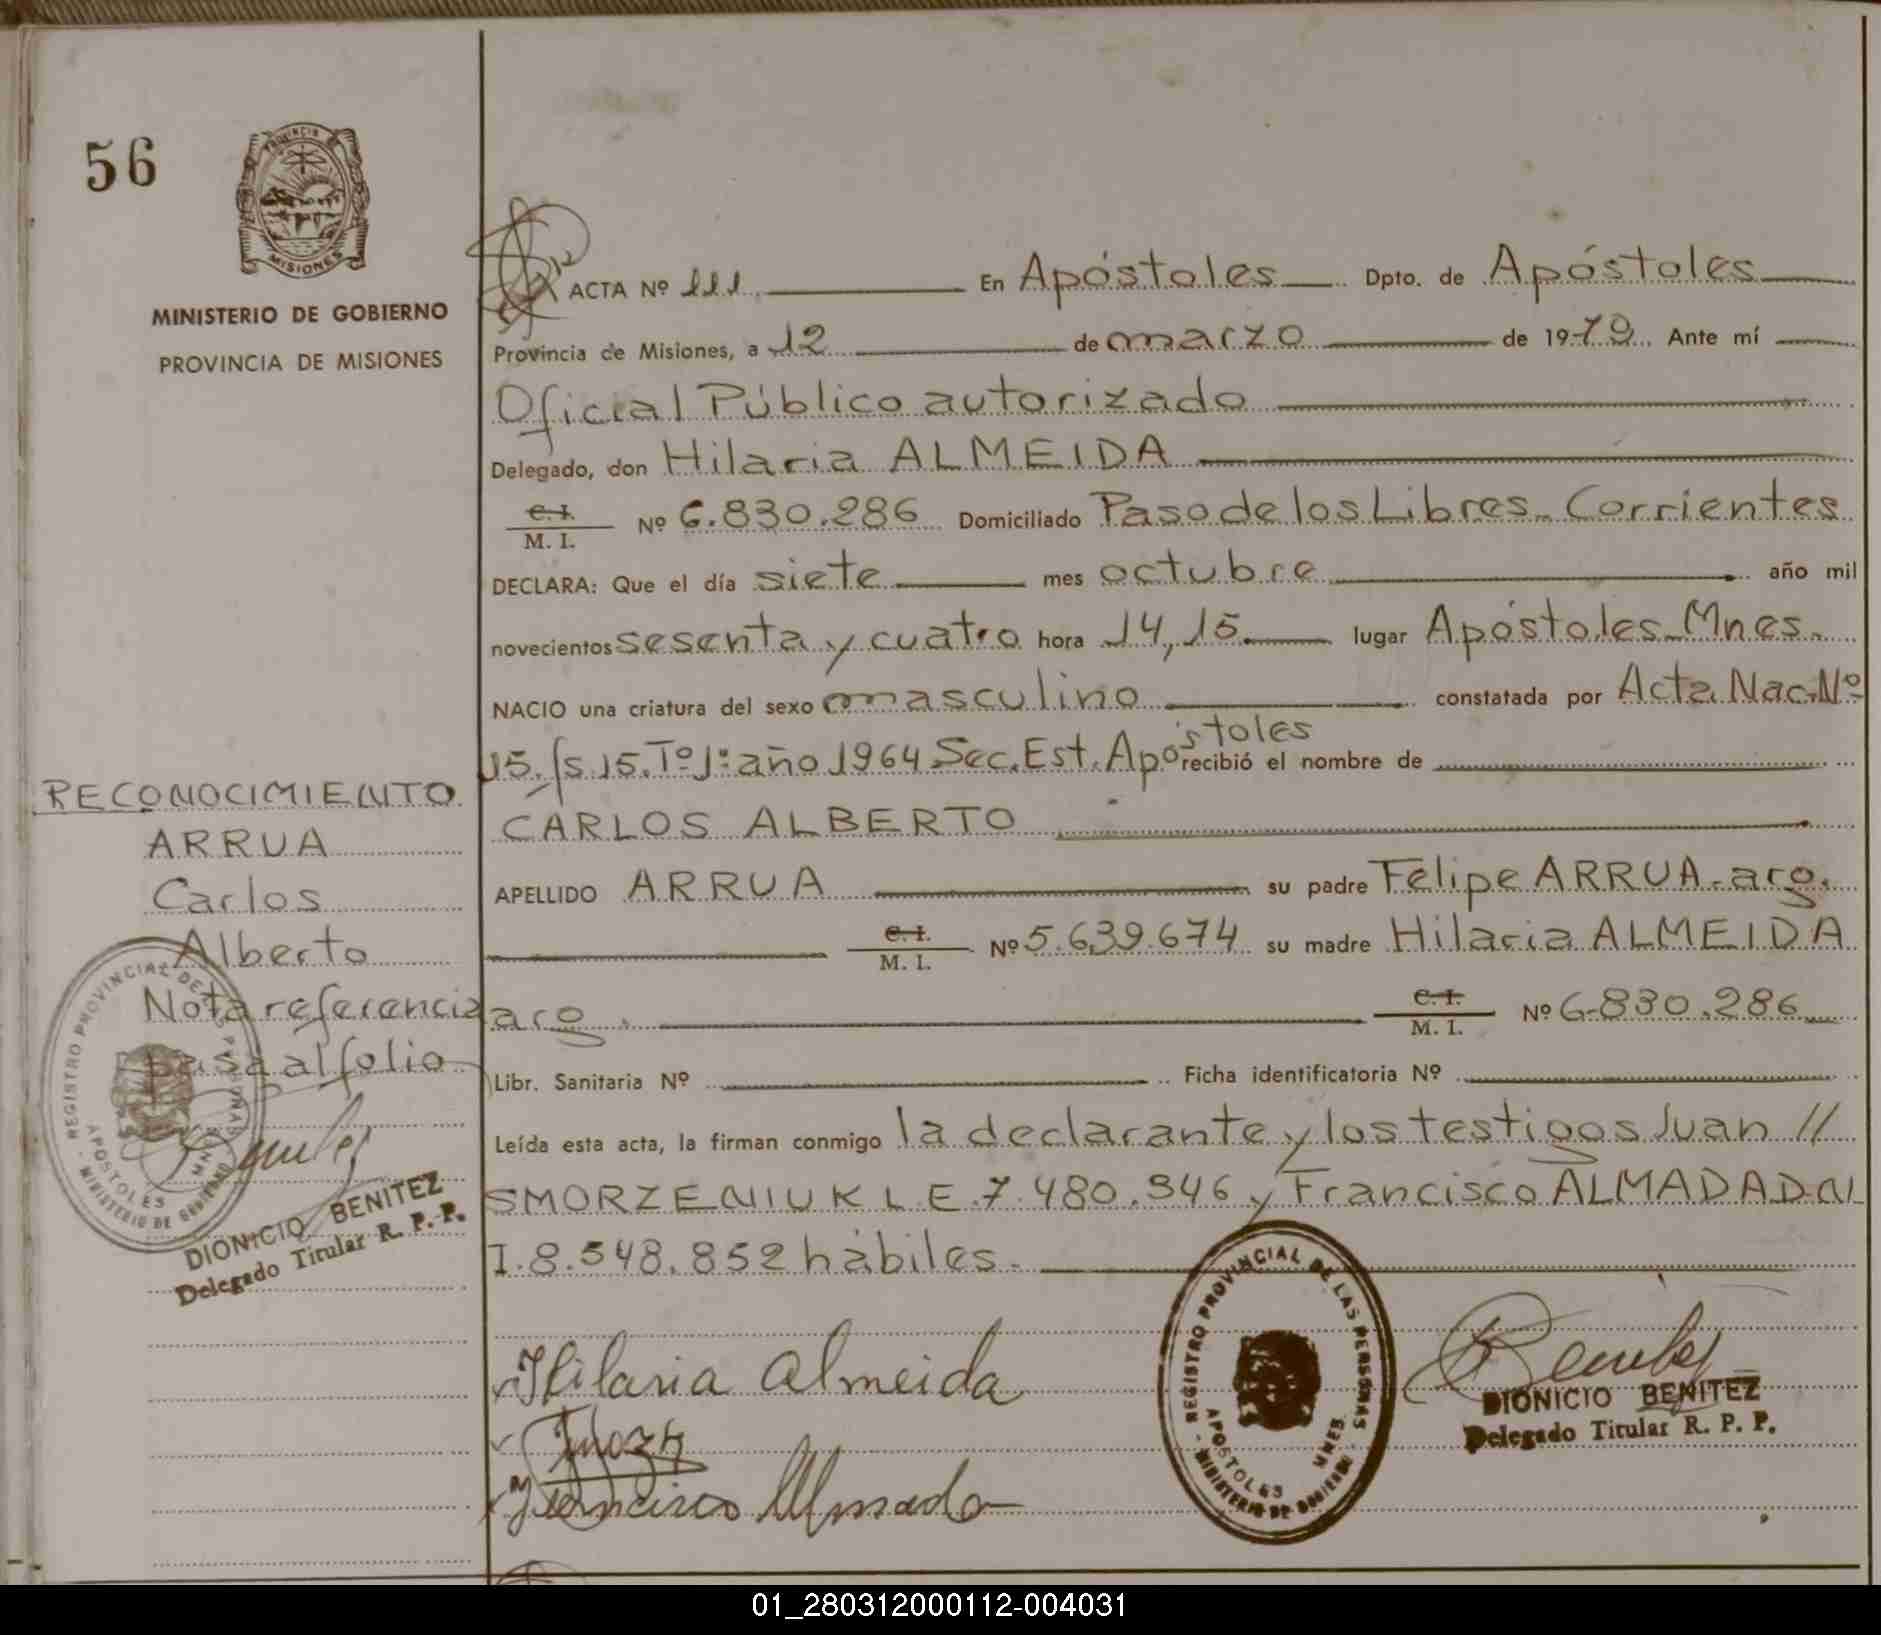 56
PROVINCIA
MISIONES
MINISTERIO DE GOBIERNO
PROVINCIA DE MISIONES
ACTA Nº 111. En Apóstoles Dpto. de Apóstoles
Provincia de Misiones, a 12 de marzo de 1970. Ante mí
Oficial Público autorizado
Delegado, don Hilaria ALMEIDA
C. I.
M. I. Nº 6.830.286 Domiciliado Paso de los Libres - Corrientes
DECLARA: Que el día siete mes octubre año mil
novecientos sesenta y cuatro hora 14,15. lugar Apóstoles - Mnes.
NACIO una criatura del sexo masculino constatada por Acta Nac. Nº
15. fs 15. Tº 1º: año 1964 Sec. Est. Apóstoles recibió el nombre de
CARLOS ALBERTO
APELLIDO ARRUA su padre Felipe ARRUA - arg.
C. I.
M. I. Nº 5.639.674 su madre Hilaria ALMEIDA
arg. C. I.
M. I. Nº 6-830.286
Libr. Sanitaria Nº Ficha identificatoria Nº
Leída esta acta, la firman conmigo la declarante y los testigos Juan //
SMORZENIUK L E. 7.480.946 y Francisco ALMADA D.N.
I. 8.548.852 hábiles.
RECONOCIMIENTO
ARRUA
Carlos
Alberto
Nota referencia
pasa al folio
REGISTRO PROVINCIAL DE LAS PERSONAS
APOSTOLES MNES
- MINISTERIO DE GOBIERNO -
DIONICIO BENITEZ
Delegado Titular R. P. P.
Hilaria Almeida
Francisco Almada
REGISTRO PROVINCIAL DE LAS PERSONAS
APOSTOLES MNES.
- MINISTERIO DE GOBIERNO -
Benitez
DIONICIO BENITEZ
Delegado Titular R. P. P.
01_280312000112-004031